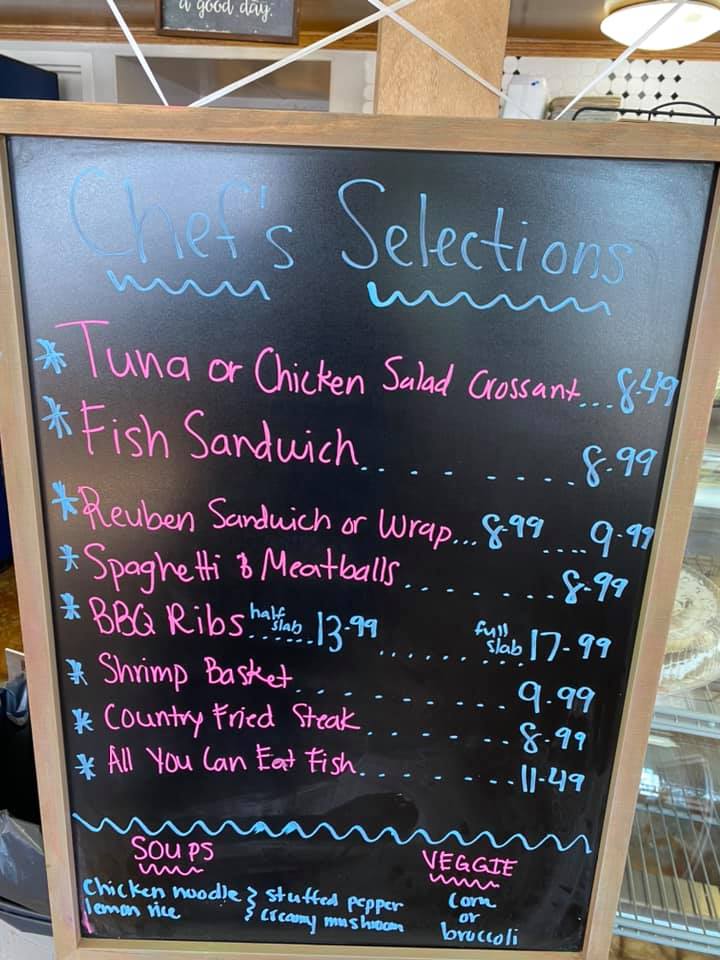 a good day.
Chef's Selections
* Tuna or Chicken Salad Crossant...8.49
* Fish Sandwich.........8.99
* Reuben Sandwich or Wrap...8.99....9.99
* Spaghetti & Meatballs.........8.99
* BBQ Ribs half slab......13.99.......full slab 17.99
* Shrimp Basket..........9.99
* Country Fried Steak........8.99
* All You Can Eat Fish.........11.49
SOUPS
chicken noodle & stuffed pepper
lemon rice & creamy mushroom
VEGGIE
corn
or
broccoli